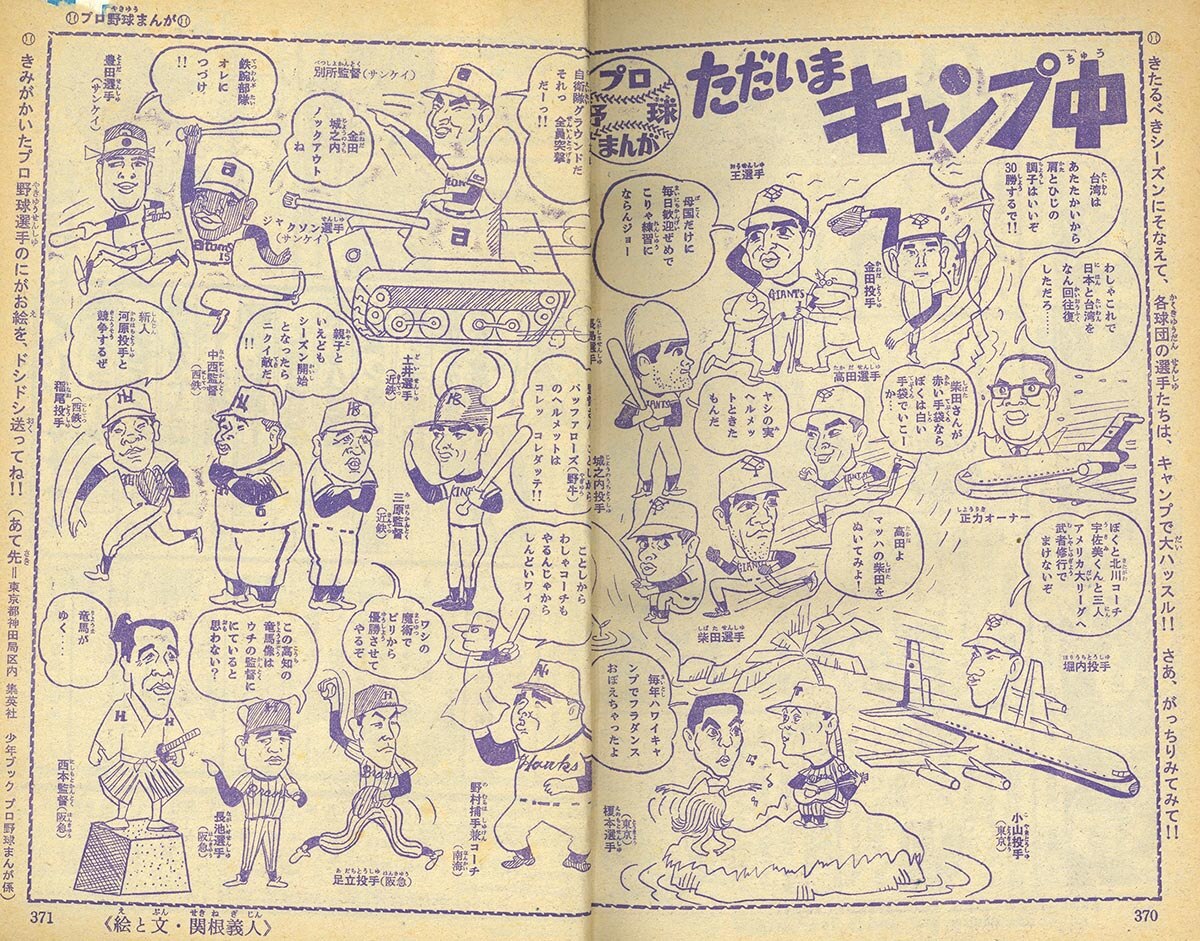 きたるべきシーズンにそなえて、各球団の選手たちは、キャンプで大ハッスル!! さあ、がっちりみてみて!!
プロ
野球
まんが
ただいま
キャンプ中
台湾は
あたたかいから
肩とひじの
調子はいいぞ
30勝するで!!
金田投手
王選手
母国だけに
毎日歓迎ぜめで
こりゃ練習に
ならんジョー
わしゃこれで
日本と台湾を
なん回往復
しただろ…
正力オーナー
高田選手
柴田さんが
赤い手袋なら
ぼくは白い
手袋でいこー
か…
ヤシの実
ヘルメッ
トときた
もんだ
長島選手
城之内投手
高田よ
マッハの柴田を
ぬいてみよ!
柴田選手
ぼくと北川コーチ
宇佐美くんと三人
アメリカ大リーグへ
武者修行で
まけないぞ
堀内投手
毎年ハワイキャ
ンプでフラダンス
おぼえちゃったよ
榎本選手
(東京)
小山投手
(東京)
370
プロ野球まんが
自衛隊グラウンドだ
それっ 全員突撃
だーっ!!
別所監督(サンケイ)
金田
城之内
ノックアウト
ね
ジャクソン選手
(サンケイ)
鉄腕部隊
オレに
つづけ
!!
豊田選手
(サンケイ)
a
atoms
15
a
GIANTS
GIANTS
GIANTS
バッファローズ(野牛)
のヘルメットは
コレッ コレダッテ!!
土井選手
(近鉄)
親子と
いえども
シーズン開始
となったら
ニクイ敵だ
!!
中西監督
(西鉄)
三原監督
(近鉄)
新人
河原投手と
競争するぜ
稲尾投手
(西鉄)
6
ことしから
わしゃコーチも
やるんじゃから
しんどいワイ
野村捕手兼コーチ
(南海)
Hawks
ワシの
魔術で
ビリから
優勝させて
やるぞ
この高知の
竜馬像は
ウチの監督に
にていると
思わない?
足立投手(阪急)
長池選手
(阪急)
Braves
Braves
竜馬が
ゆく…
西本監督(阪急)
H H
きみがかいたプロ野球選手のにがお絵を、ドシドシ送ってね!! (あて先=東京都神田局区内 集英社 少年ブック プロ野球まんが係)
371
《絵と文・関根義人》